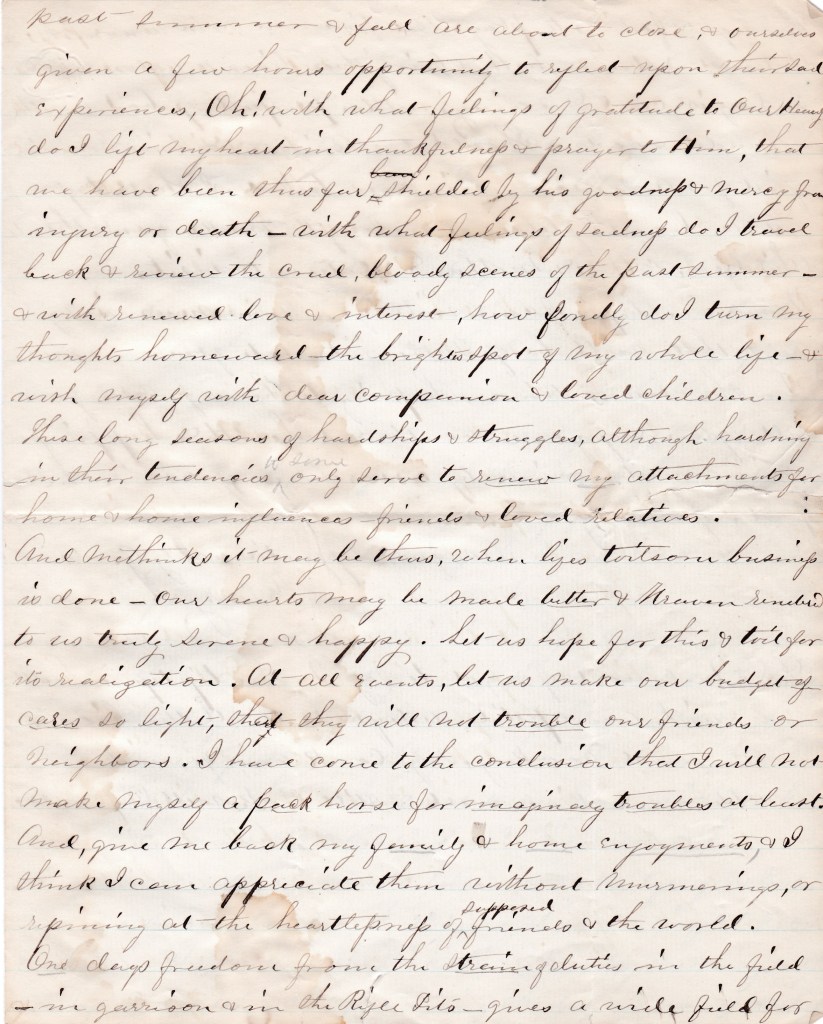 past summer & fall are about to close, & ourselves
given a few hours opportunity to reflect upon their sad
experiences, Oh! with what feelings of gratitude to Our Heavenly
do I lift my heart in thankfulness & prayer to Him, that
we have been thus far shielded by his goodness & mercy from
injury or death – with what feelings of sadness do I travel
back & review the cruel, bloody scenes of the past summer –
& with renewed love & interest, how fondly do I turn my
thoughts homeward – the brightest spot of my whole life – &
wish myself with dear companion & loved children.
These long seasons of hardships & struggles, although hardning
in their tendencies to some only serve to renew my attachments for
home & home influences – friends & loved relatives.
And methinks it may be thus, when lifes toilsom business
is done – our hearts may be made better & Heaven rendered
to us truly serene & happy. Let us hope for this & toil for
its realization. At all events, let us make our budget of
cares so light, that they will not trouble our friends or
neighbors. I have come to the conclusion that I will not
make myself a pack horse for imaginary troubles at least.
And, give me back my family & home enjoyments, & I
think I can appreciate them without murmerings, or
repining at the heartlessness of supposed friends & the world.
One days freedom from the strain of duties in the field
– in garrison & in the Rifle Pits – gives a wide field for